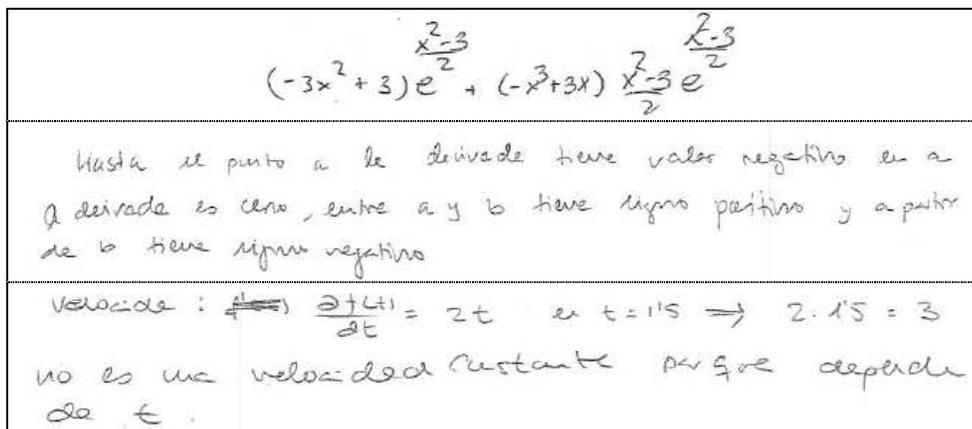 (-3x² + 3) e^((x²-3)/2) + (-x³+3x) (x²-3)/2 e^((x²-3)/2)
Hasta el punto a la derivada tiene valor negativo en a
la derivada es cero, entre a y b tiene signo positivo y a partir
de b tiene signo negativo
velocidad : ∂f(t)/∂t = 2t en t = 1'5 ⇒ 2 · 1'5 = 3
no es una velocidad constante porque depende
de t.